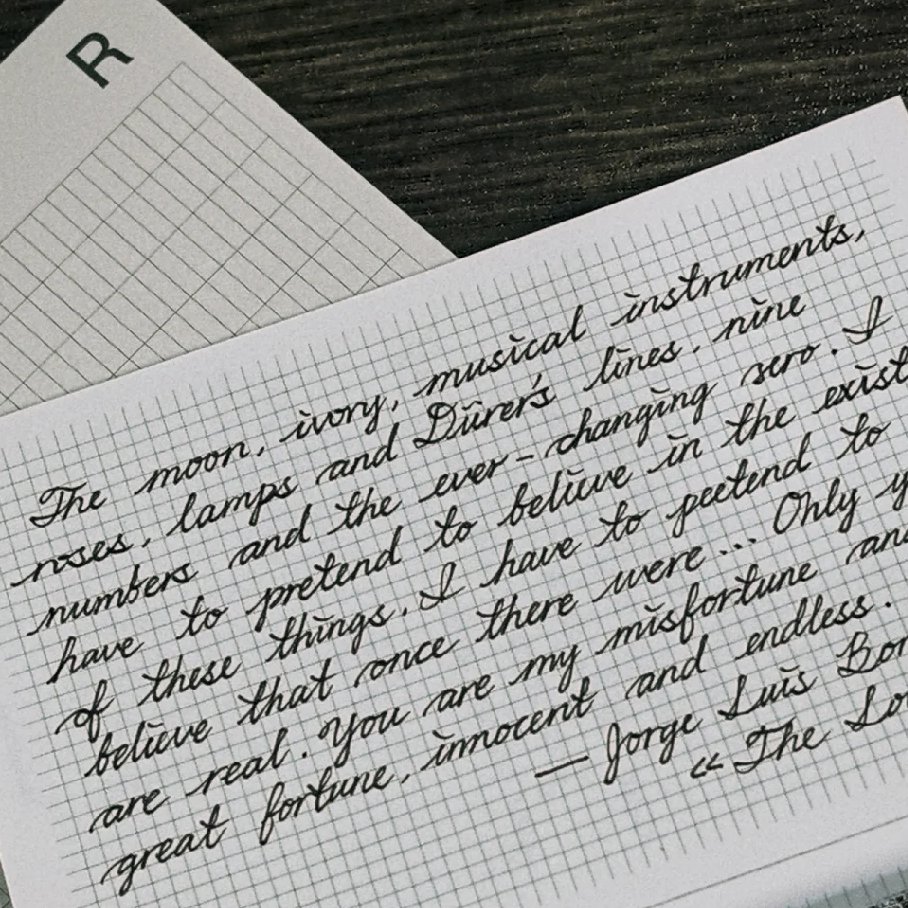 R
The moon, ivory, musical instruments,
roses, lamps and Dürer's lines, nine
numbers and the ever-changing zero. I
have to pretend to believe in the exist
of these things. I have to pretend to
believe that once there were... Only y
are real. You are my misfortune and
great fortune, innocent and endless.
— Jorge Luis Bor
« The Lo